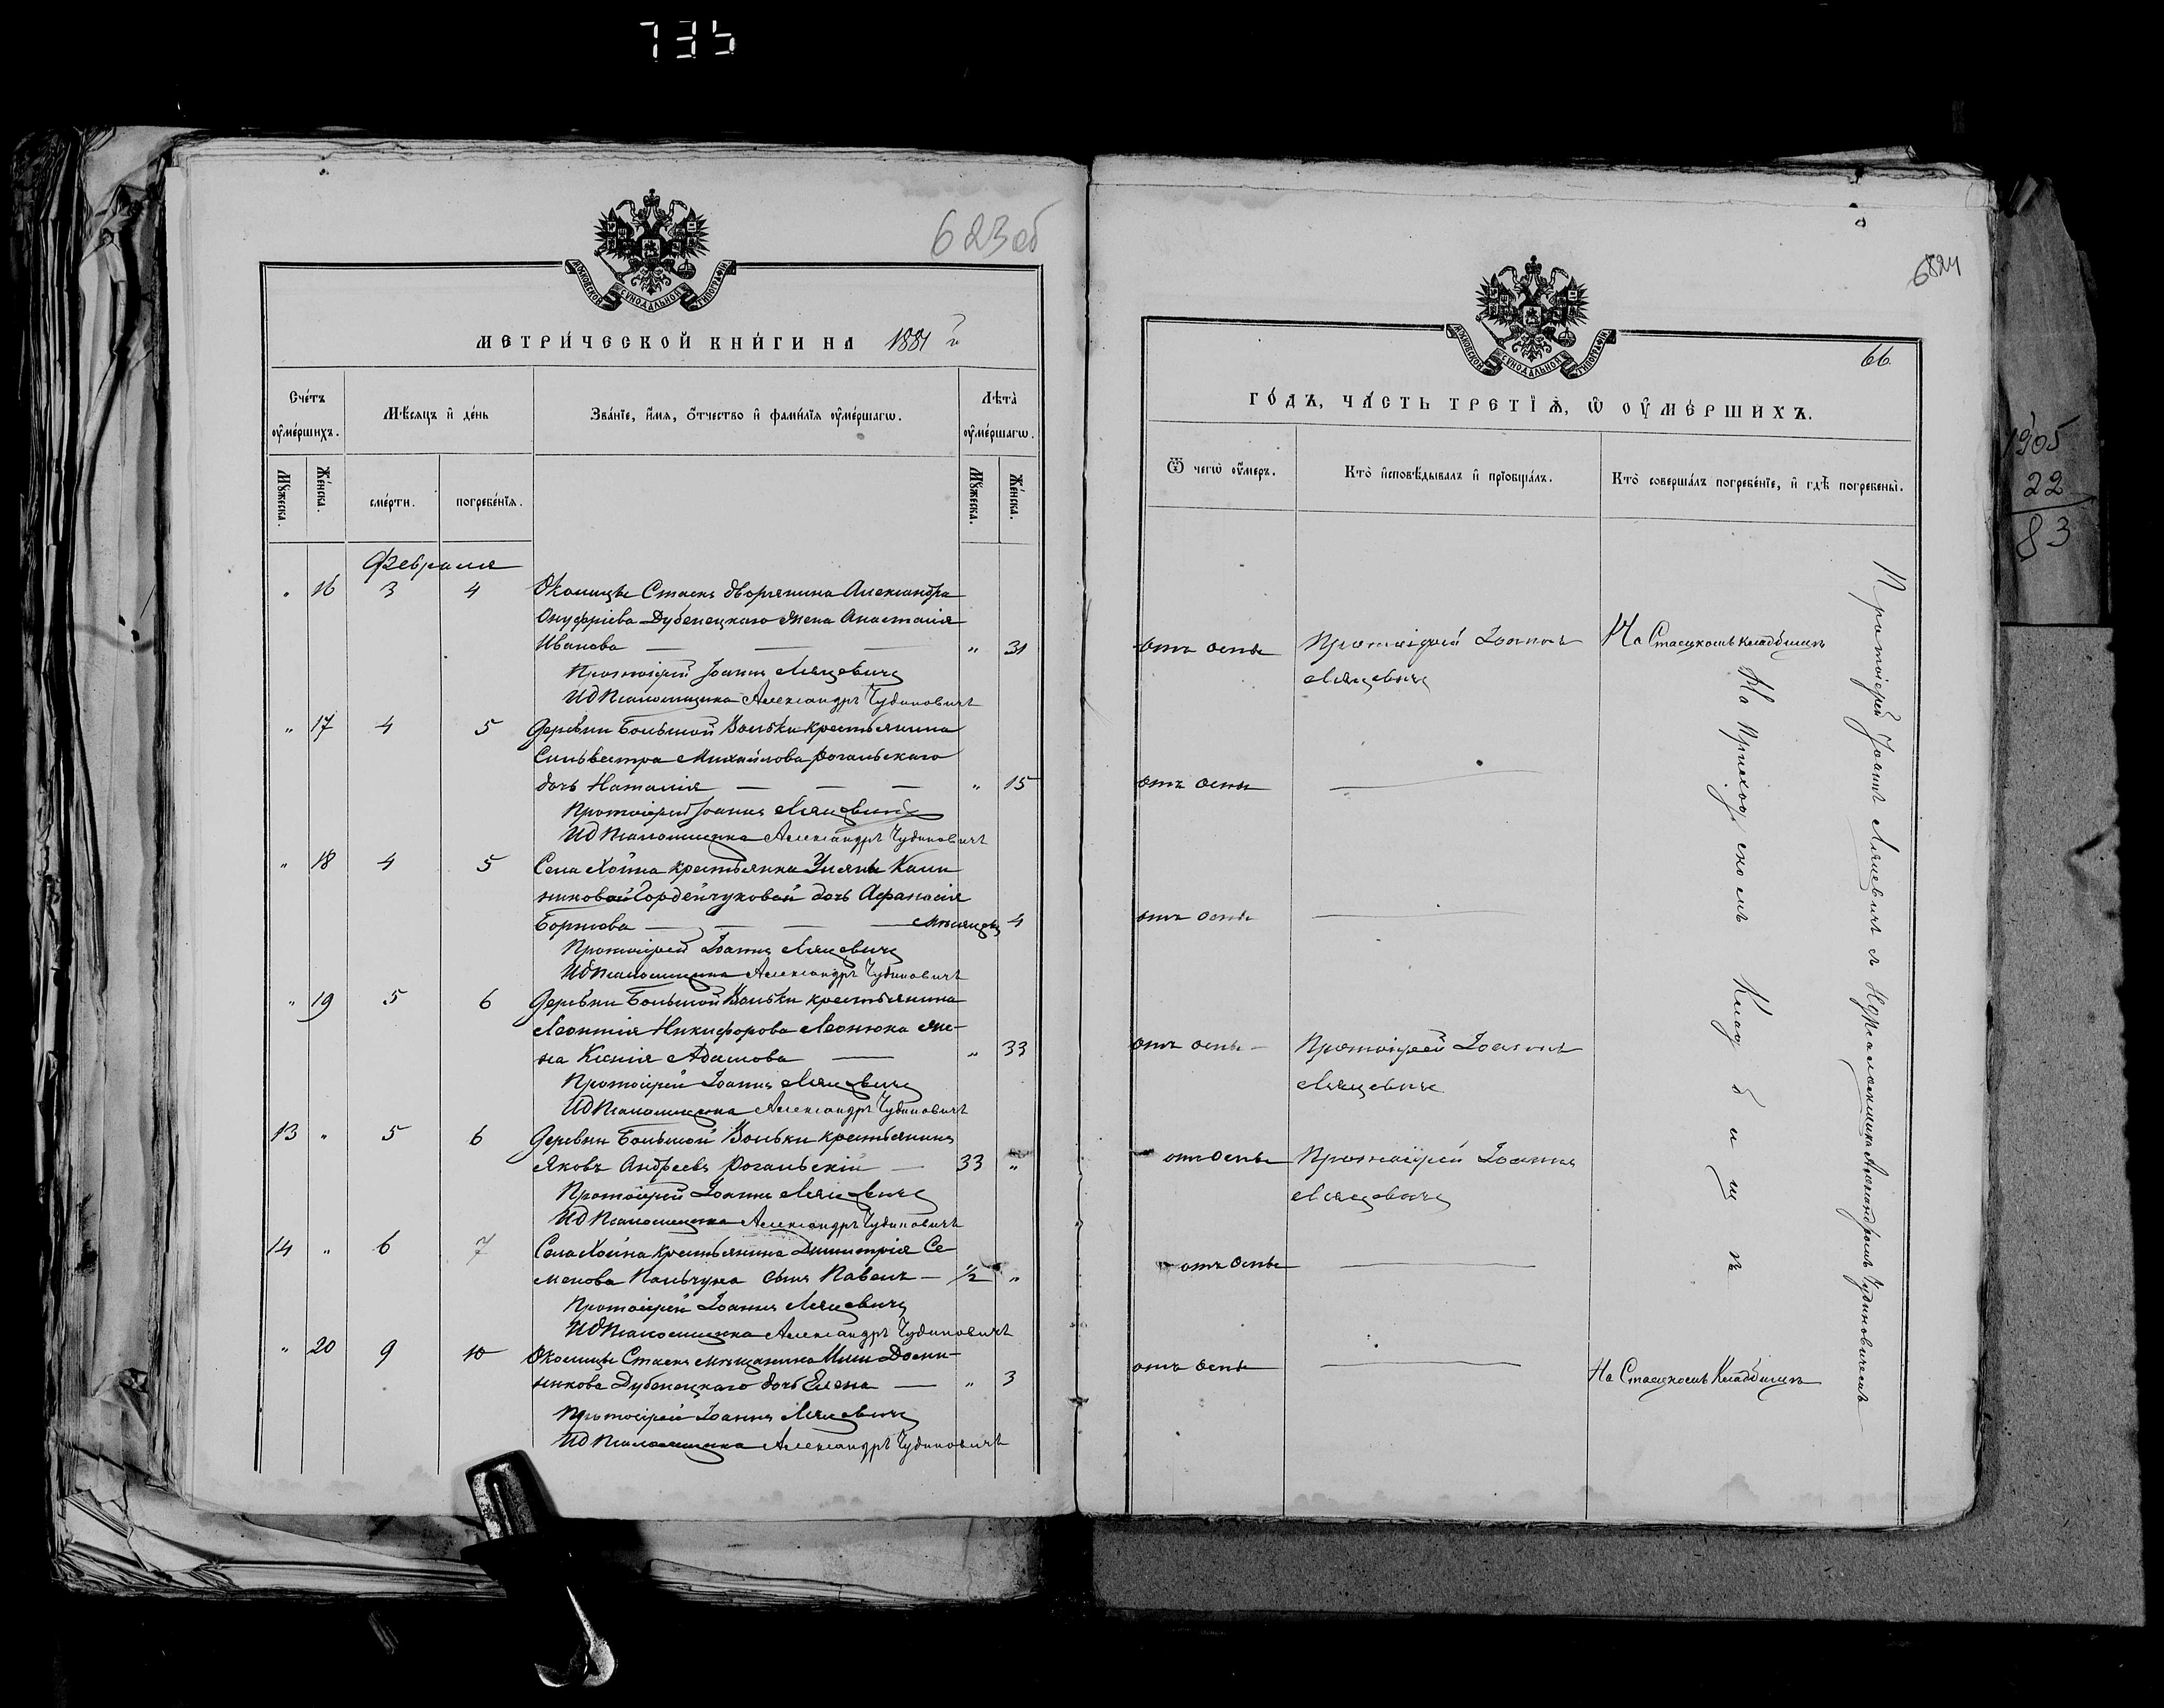 735
623об
МОСКОВСКОЙ СУНОДАЛЬНОЙ ТИПОГРАФІИ
МЕТРИ́ЧЕСКОЙ КНИ́ГИ НА 1881 й
Сче́тъ ᲂу҆ме́ршихъ.
Мѣ́сяцъ и҆ де́нь
Зва́нїе, и҆́мя, ѻ҆́тчество и҆ фами́лїя ᲂу҆ме́ршагѡ.
Лѣ́та ᲂу҆ме́ршагѡ.
Мꙋ́жеска.
Же́нска.
сме́рти.
погребе́нїя.
Мꙋ́жеска.
Же́нска.
Февраля
" 16 3 4 Околицы Стаекъ дворянина Александра
Онуфріева Дубенецкаго жена Анастасія
Иванова — — — " 31
Протоіерей Іоаннъ Ляцевичъ
ИД Псаломщика Александръ Чудиновичъ
" 17 4 5 Деревни Большой Вольки крестьянина
Сильвестра Михайлова Рогальскаго
дочь Наталія — — — " 15
Протоіерей Іоаннъ Ляцевичъ
ИД Псаломщика Александръ Чудиновичъ
" 18 4 5 Села Хойна крестьянки Ульяны Калин
никовой Гордейчуковой дочь Афанасія
Борисова — — — мѣсяцевъ 4
Протоіерей Іоаннъ Ляцевичъ
ИД Псаломщика Александръ Чудиновичъ
" 19 5 6 Деревни Большой Вольки крестьянина
Леонтія Никифорова Леонюка же-
на Ксенія Адамова — " 33
Протоіерей Іоаннъ Ляцевичъ
ИД Псаломщика Александръ Чудиновичъ
13 " 5 6 Деревни Большой Вольки крестьянинъ
Яковъ Андреевъ Рогальскій — 33 "
Протоіерей Іоаннъ Ляцевичъ
ИД Псаломщика Александръ Чудиновичъ
14 " 6 7 Села Хойна крестьянина Димитрія Се
менова Пальчука сынъ Павелъ — 1/2 "
Протоіерей Іоаннъ Ляцевичъ
ИД Псаломщика Александръ Чудиновичъ
" 20 9 10 Околицы Стаекъ мѣщанина Ильи Доми-
никова Дубенецкаго дочь Елена — " 3
Протоіерей Іоаннъ Ляцевичъ
ИД Псаломщика Александръ Чудиновичъ
624
66
МОСКОВСКОЙ СУНОДАЛЬНОЙ ТИПОГРАФІИ
ГО́ДЪ, ЧА́СТЬ ТРЕ́ТЇѦ, Ѡ҆ ОУ҆МЕ́РШИХЪ.
Ѿ чегѡ̀ ᲂу҆́меръ.
Кто̀ и҆сповѣ́дывалъ и҆ прїѡбща́лъ.
Кто̀ соверша́лъ погребе́нїе, и҆ гдѣ̀ погребены̀.
отъ оспы Протоіерей Іоаннъ На Стаецкомъ кладбищѣ
Ляцевичъ
отъ оспы —
отъ оспы —
отъ оспы — Протоіерей Іоаннъ
Ляцевичъ
отъ оспы Протоіерей Іоаннъ
Ляцевичъ
отъ оспы —
отъ оспы — На Стаецкомъ Кладбищѣ
На Приходскомъ Кладбищѣ
Протоіерей Іоаннъ Ляцевичъ съ ИД Псаломщика Александромъ Чудиновичемъ
1905
22
83